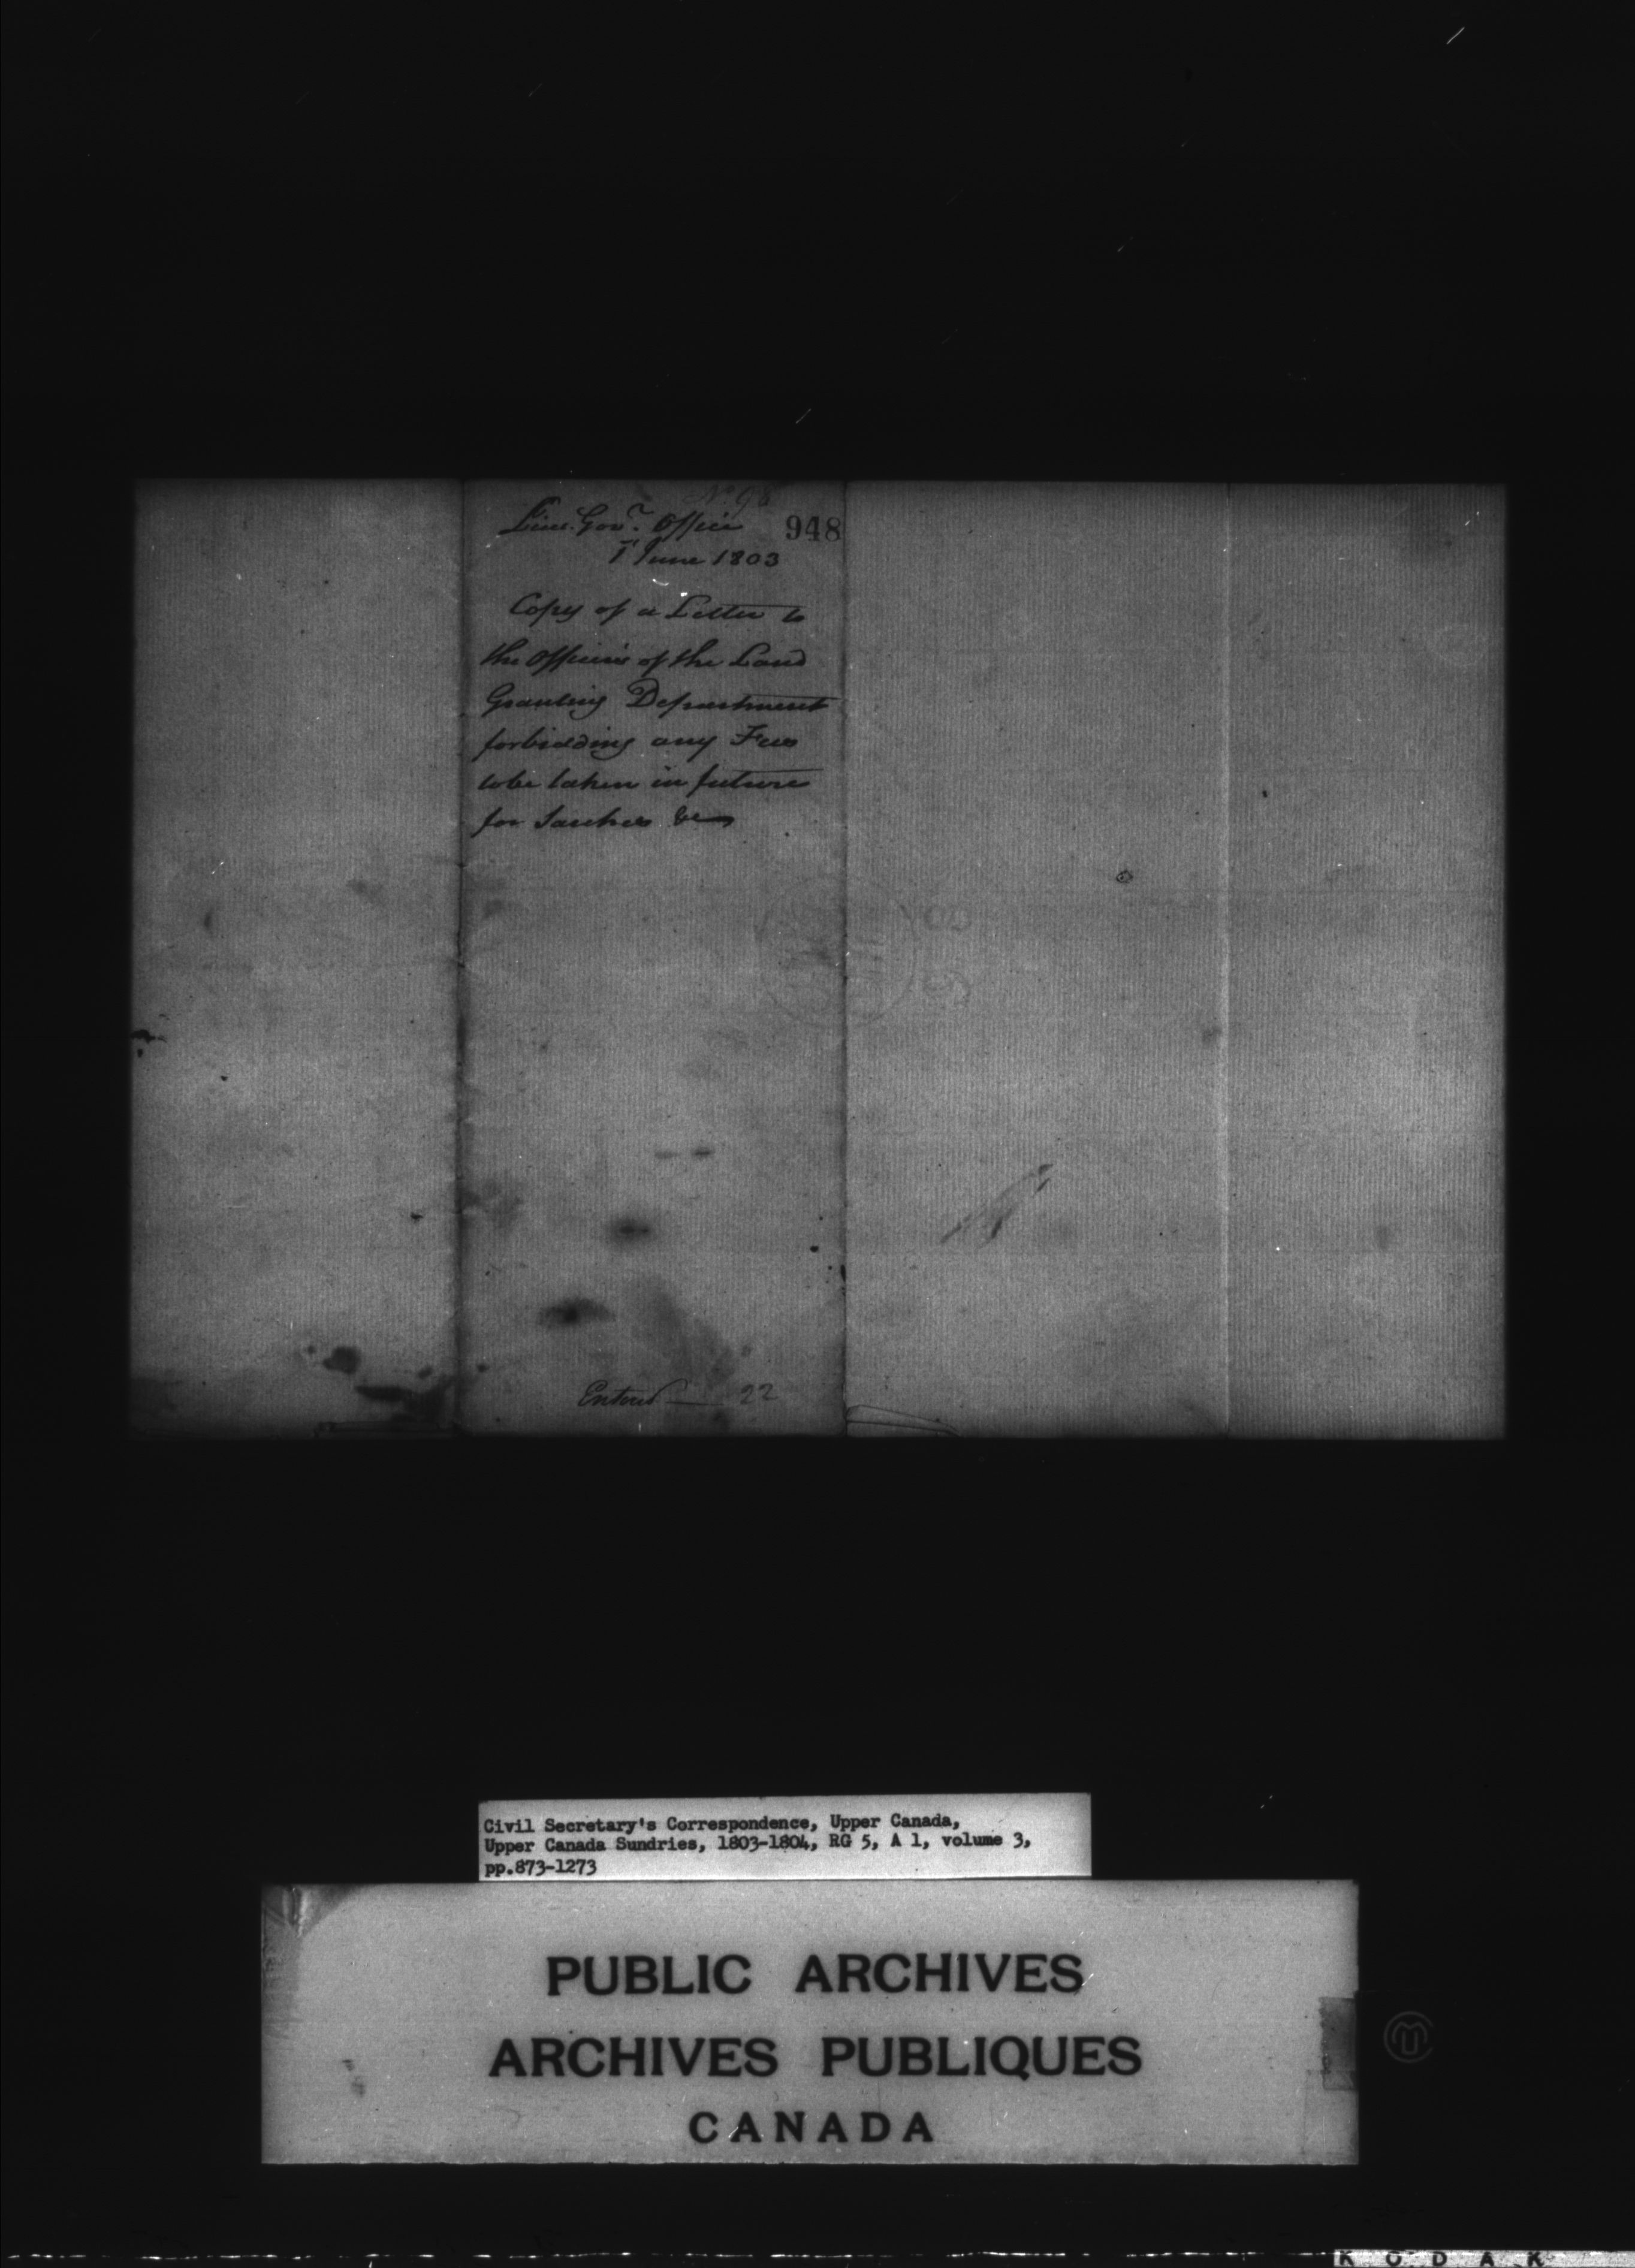 No. 96
Lieut. Govr. Office
948
1st June 1803
Copy of a Letter to
the Officers of the Land
Granting Department
forbidding any Fees
to be taken in future
for Searches &c
Entered — 22
Civil Secretary's Correspondence, Upper Canada,
Upper Canada Sundries, 1803-1804, RG 5, A 1, volume 3,
pp.873-1273
PUBLIC ARCHIVES
ARCHIVES PUBLIQUES
CANADA
KODAK